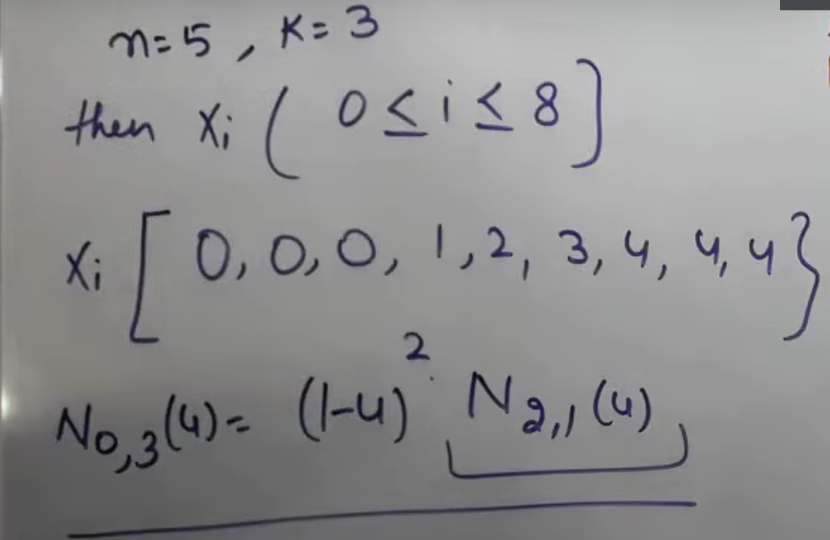 n=5, K=3
then Xi ( 0 ≤ i ≤ 8 ]
Xi [ 0, 0, 0, 1, 2, 3, 4, 4, 4 }
N0,3(u) = (1-u)² · N2,1(u)